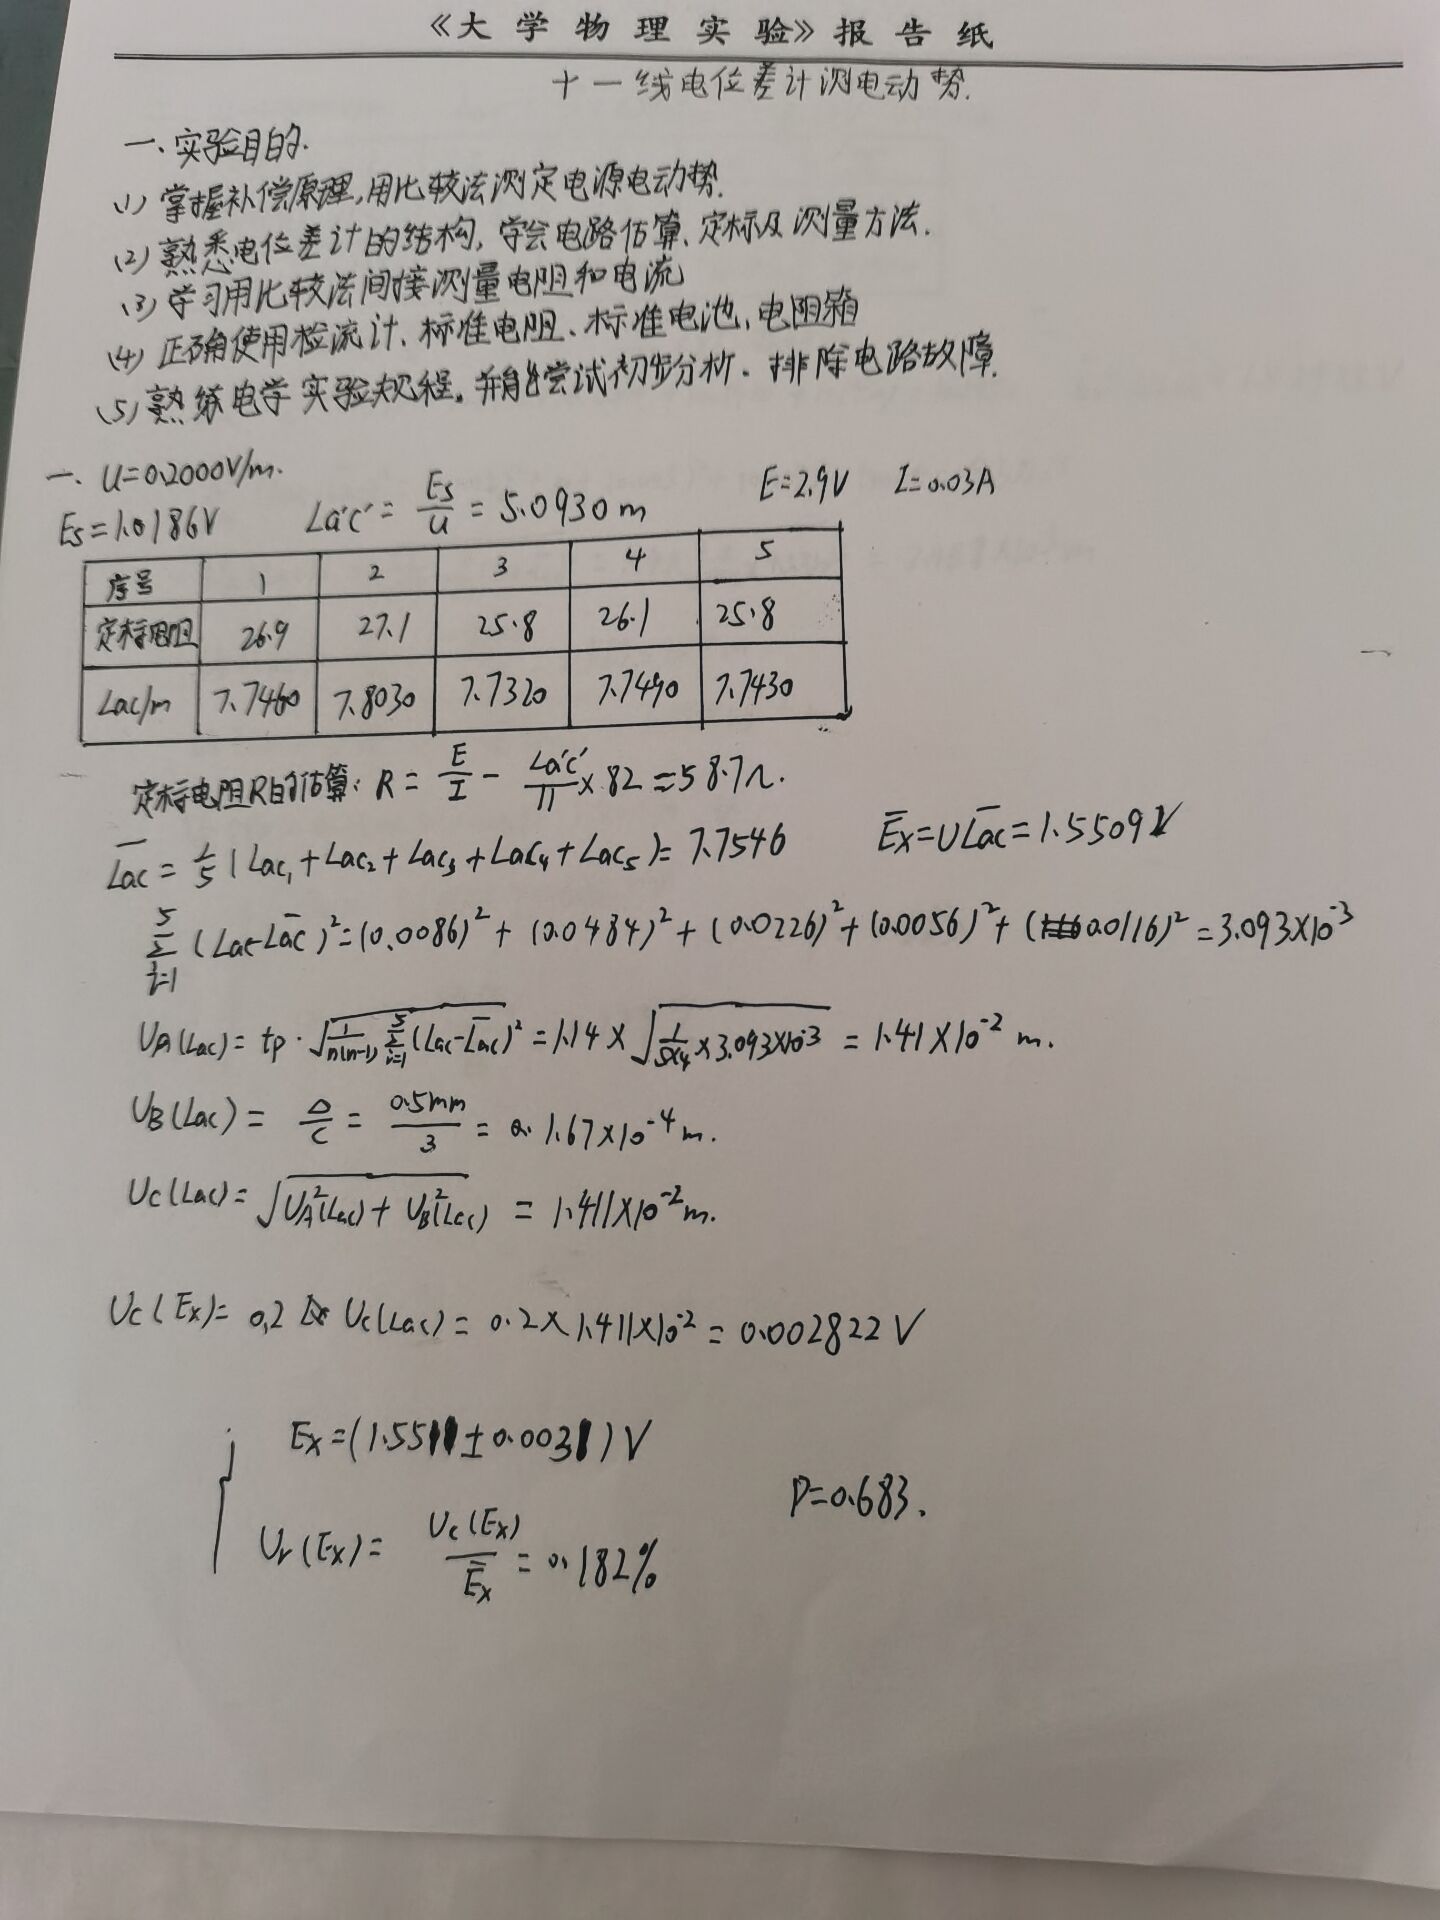 《大学物理实验》报告纸
十一线电位差计测电动势.
一、实验目的.
(1) 掌握补偿原理,用比较法测定电源电动势.
(2) 熟悉电位差计的结构,学会电路估算、定标及测量方法.
(3) 学习用比较法间接测量电阻和电流
(4) 正确使用检流计、标准电阻、标准电池、电阻箱
(5) 熟练电学实验规程。并能尝试初步分析。排除电路故障.
一、U=0.2000V/m.
Es=1.0186V La'c' = Es/U = 5.0930m E=2.9V I=0.03A
序号 1 2 3 4 5
定标电阻 26.9 27.1 25.8 26.1 25.8
Lac/m 7.7460 7.8030 7.7320 7.7490 7.7430
定标电阻R的估算: R = E/I - La'c'/11 × 82 = 58.7Ω.
L̅ac = 1/5 (Lac₁+Lac₂+Lac₃+Lac₄+Lac₅)= 7.7546 E̅x=UL̅ac=1.5509V
5∑i=1 (Lac-L̅ac)²=(0.0086)²+(0.0484)²+(0.0226)²+(0.0056)²+(0.0116)²=3.093×10⁻³
UA(Lac)= tp·√(1/n(n-1) 5∑i=1 (Lac-L̅ac)²) = 1.14×√(1/5×4 ×3.093×10⁻³) = 1.41×10⁻² m.
UB(Lac)= Δ/C = 0.5mm/3 = 1.67×10⁻⁴m.
Uc(Lac)=√(UA²(Lac)+UB²(Lac)) = 1.411×10⁻²m.
Uc(Ex)= 0.2 Uc(Lac)= 0.2×1.411×10⁻²=0.002822V
Ex=(1.5511±0.0031)V
P=0.683.
Ur(Ex)= Uc(Ex)/E̅x = 0.182%